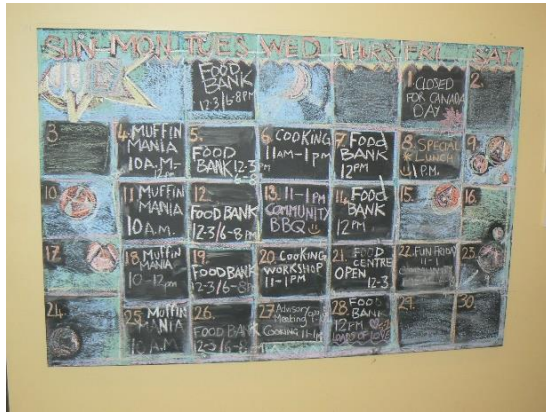 SUN-MON TUES WED THURS FRI SAT
FOOD
BANK
12-3/6-8PM
1. CLOSED
FOR CANADA
DAY
2.
3.
4. MUFFIN
MANIA
10 A.M.-
5.
FOOD
BANK 12-3
6. COOKING
11AM-1PM
7. FOOD
BANK
12PM
8. SPECIAL
LUNCH
1 P.M.
9.
10.
11. MUFFIN
MANIA
10 A.M.
12.
FOOD BANK
12-3/6-8PM
13. 11-1PM
COMMUNITY
BBQ
14. FOOD
BANK
12PM
15.
16.
17.
18 MUFFIN
MANIA
10-12pm
19.
FOOD BANK
12-3/6-8P
20. COOKING
WORKSHOP
11-1PM
21. FOOD
CENTRE
OPEN
12-3
22. FUN FRIDAY
11-1
COMMUNITY
23.
24.
25. MUFFIN
MANIA
10 A.M.
26.
FOOD BANK
12-3/6-8
27 Advisory
Meeting
COOKING 11-1
28. FOOD
BANK
12PM
LOADS OF LOVE
29.
30.